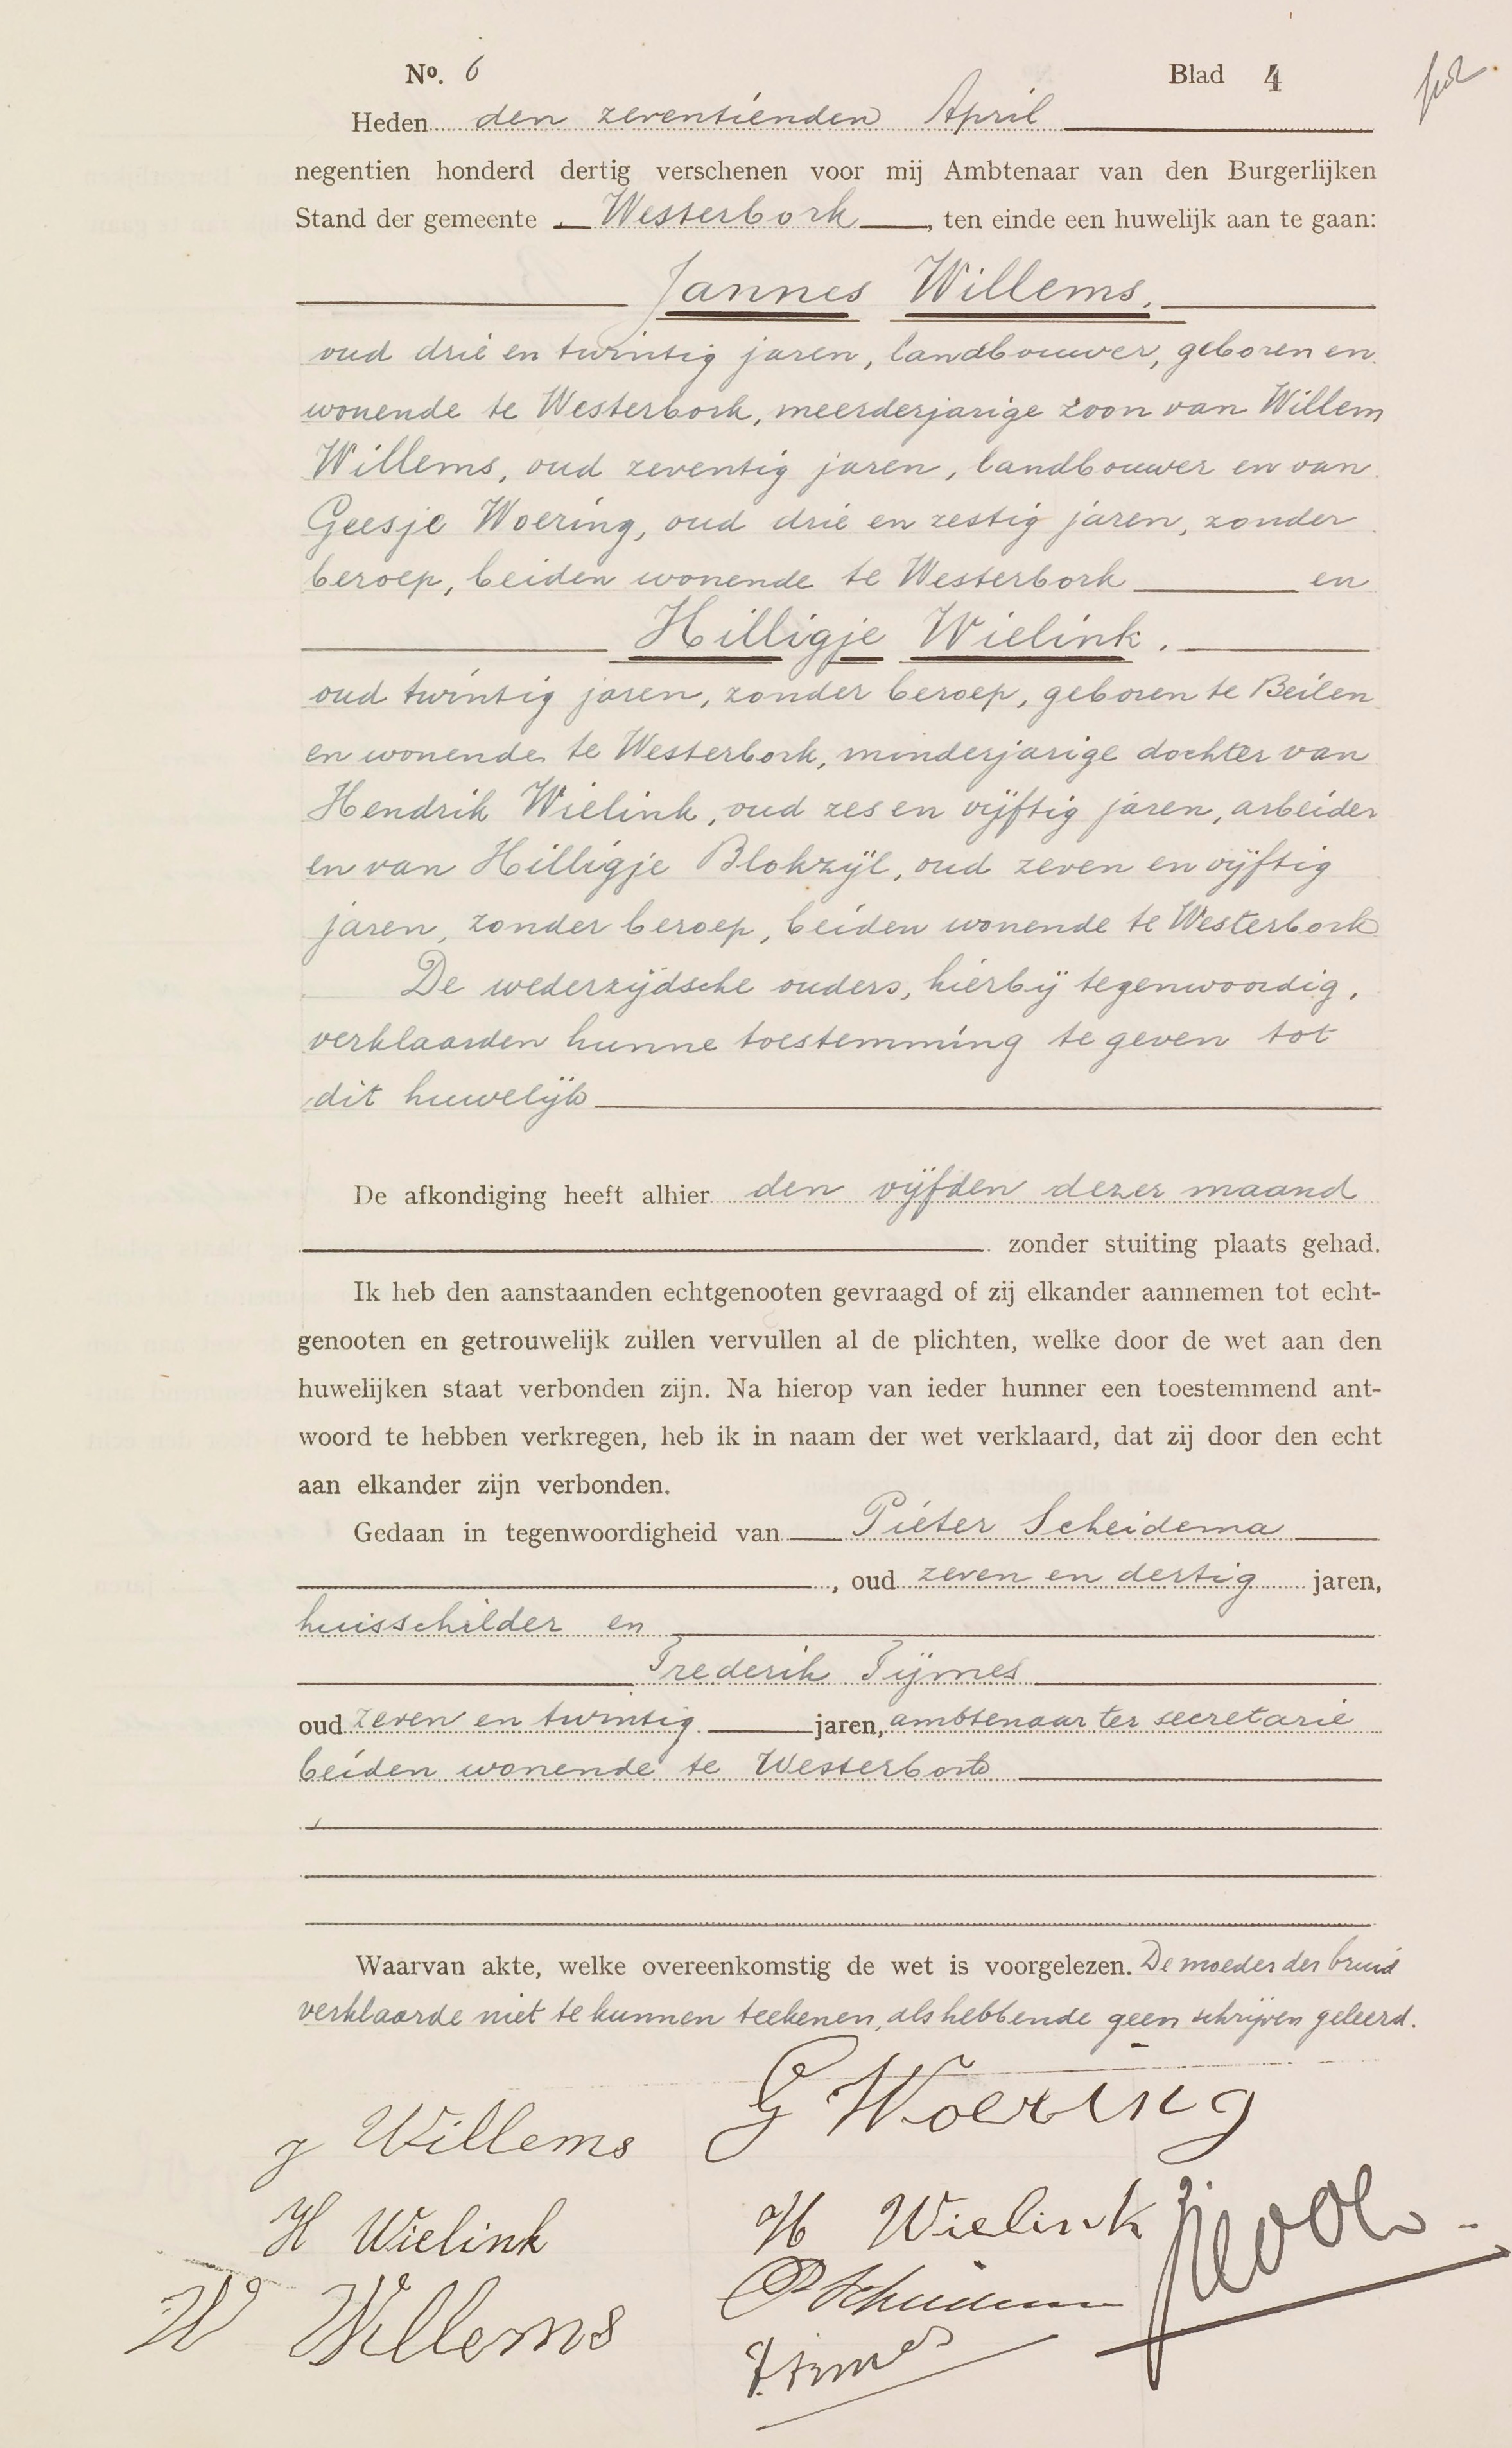 No. 6 Blad 4
Heden den zeventienden April
negentien honderd dertig verschenen voor mij Ambtenaar van den Burgerlijken
Stand der gemeente Westerbork, ten einde een huwelijk aan te gaan:
Jannes Willems.
oud drie en twintig jaren, landbouwer, geboren en
wonende te Westerbork, meerderjarige zoon van Willem
Willems, oud zeventig jaren, landbouwer en van
Geesje Woering, oud drie en zestig jaren, zonder
beroep, beiden wonende te Westerbork en
Hilligje Wielink.
oud twintig jaren, zonder beroep, geboren te Beilen
en wonende te Westerbork, minderjarige dochter van
Hendrik Wielink, oud zes en vijftig jaren, arbeider
en van Hilligje Blokzijl, oud zeven en vijftig
jaren, zonder beroep, beiden wonende te Westerbork
De wederzijdsche ouders, hierbij tegenwoordig,
verklaarden hunne toestemming te geven tot
dit huwelijk
De afkondiging heeft alhier den vijfden dezer maand
zonder stuiting plaats gehad.
Ik heb den aanstaanden echtgenooten gevraagd of zij elkander aannemen tot echt-
genooten en getrouwelijk zullen vervullen al de plichten, welke door de wet aan den
huwelijken staat verbonden zijn. Na hierop van ieder hunner een toestemmend ant-
woord te hebben verkregen, heb ik in naam der wet verklaard, dat zij door den echt
aan elkander zijn verbonden.
Gedaan in tegenwoordigheid van Pieter Scheidema
, oud zeven en dertig jaren,
huisschilder en
Frederik Tijmes
oud zeven en twintig jaren, ambtenaar ter secretarie
beiden wonende te Westerbork
Waarvan akte, welke overeenkomstig de wet is voorgelezen. De moeder der bruid
verklaarde niet te kunnen teekenen, als hebbende geen schrijven geleerd.
G Woering
J Willems
H Wielink H Wielink
P Scheidema
W Willems
F. Tijmes